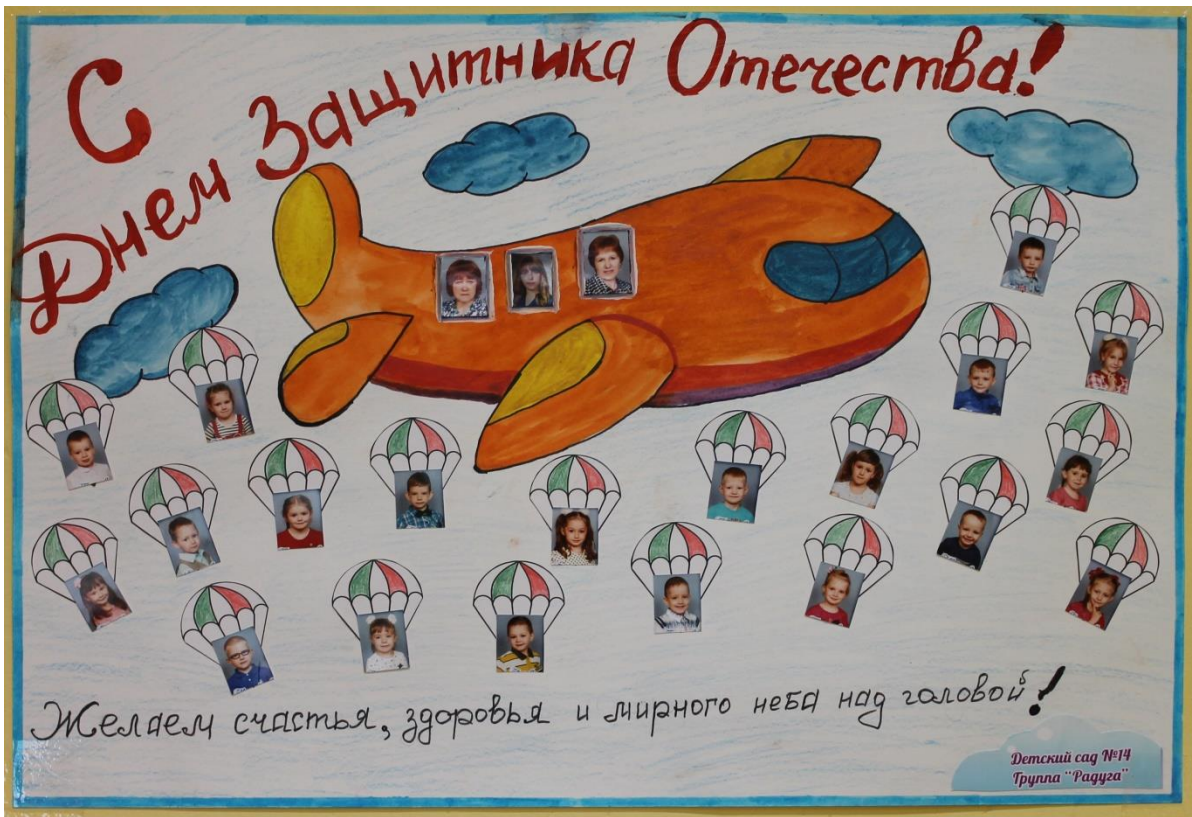 С
Днем Защитника Отечества!
Желаем счастья, здоровья и мирного неба над головой!
Детский сад №14
Группа "Радуга"